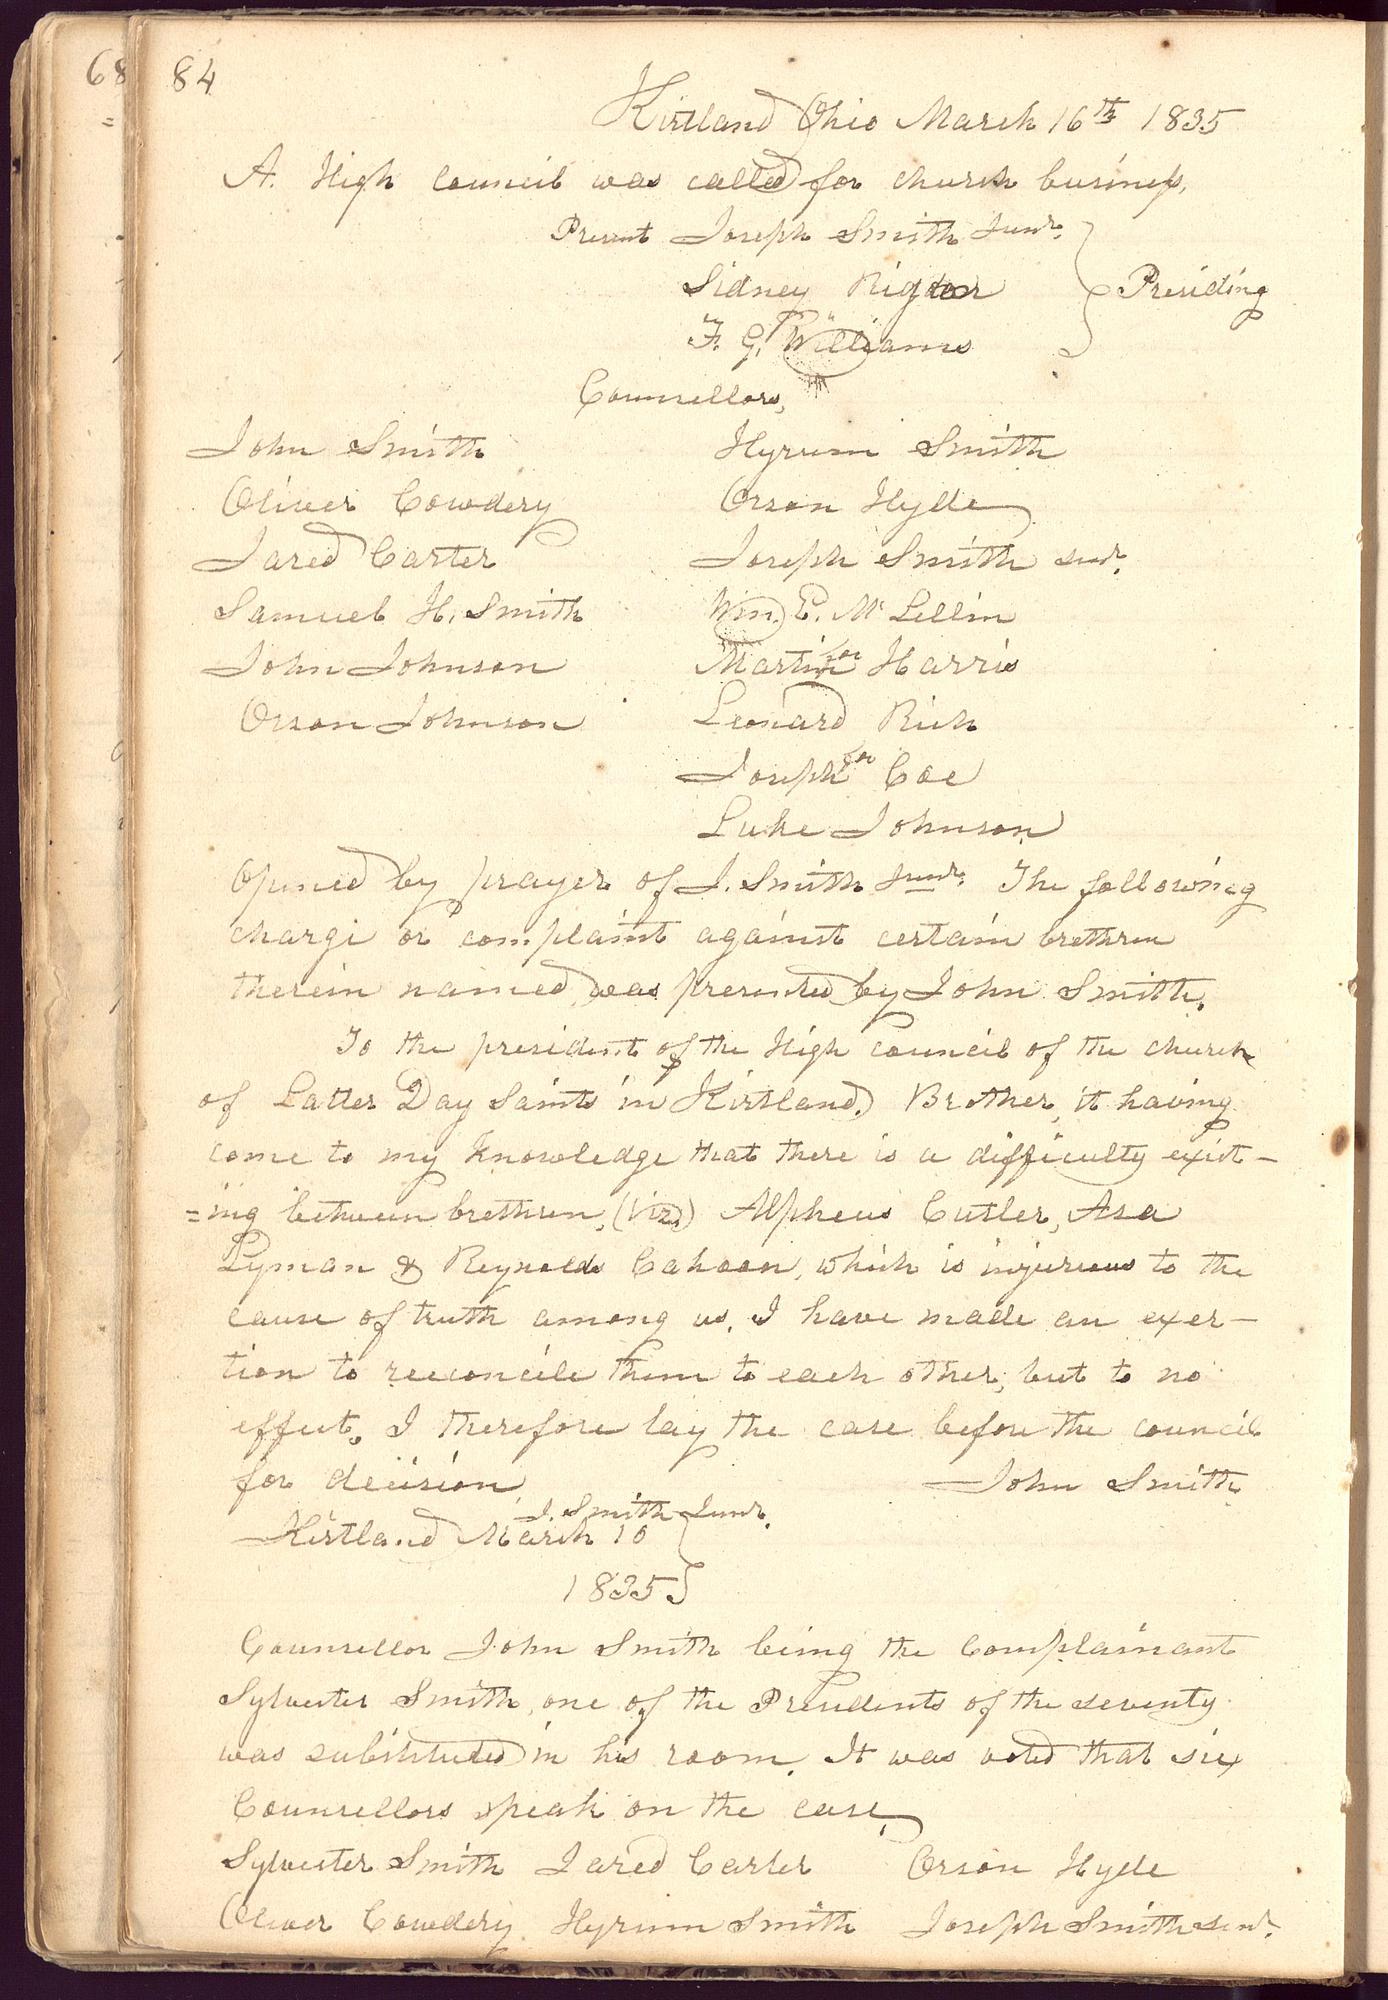 68
84
Kirtland Ohio March 16th 1835
A. High council was called for church business,
Present Joseph Smith Junr.
Sidney Rigdon } Presiding
F. G. Williams
Counsellors,
John Smith Hyrum Smith
Oliver Cowdery Orson Hyde
Jared Carter Joseph Smith senr.
Samuel H. Smith Wm. E. Mc Lellin
John Johnson Martin for Harris
Orson Johnson Leonard Rich
Joseph for Coe
Luke Johnson
Opened by prayer of J. Smith Junr. The following
charge or complaint against certain brethren
therein named, was presented by John Smith.
To the president of the High council of the church
of Latter Day Saints in Kirtland. Brother, it having
come to my knowledge that there is a difficulty exist-
=ing between brethren, (viz.) Alpheus Cutler, Asa
Lyman & Reynolds Cahoon, which is injurious to the
cause of truth among us. I have made an exer-
tion to reconcile them to each other, but to no
effect. I therefore lay the case before the council
for decision John Smith
J. Smith Junr.
Kirtland March 16
1835 }
Counsellor John Smith being the complainant
Sylvester Smith, one of the Presidents of the seventy
was substituted in his room. It was voted that six
Counsellors speak on the case,
Sylvester Smith Jared Carter Orson Hyde
Oliver Cowdery Hyrum Smith Joseph Smith senr.